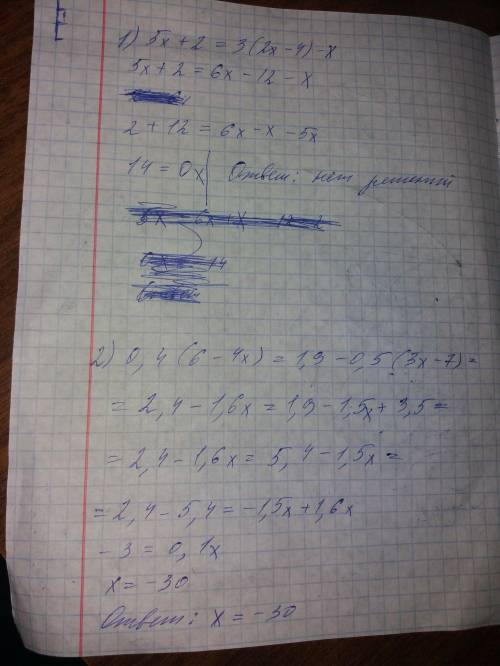 1) 5x + 2 = 3(2x - 4) - x
5x + 2 = 6x - 12 - x
2 + 12 = 6x - x - 5x
14 = 0x | Ответ: нет решений
2) 0,4(6 - 4x) = 1,9 - 0,5(3x - 7) =
= 2,4 - 1,6x = 1,9 - 1,5x + 3,5 =
= 2,4 - 1,6x = 5,4 - 1,5x =
= 2,4 - 5,4 = -1,5x + 1,6x
- 3 = 0,1x
x = -30
Ответ: x = -30